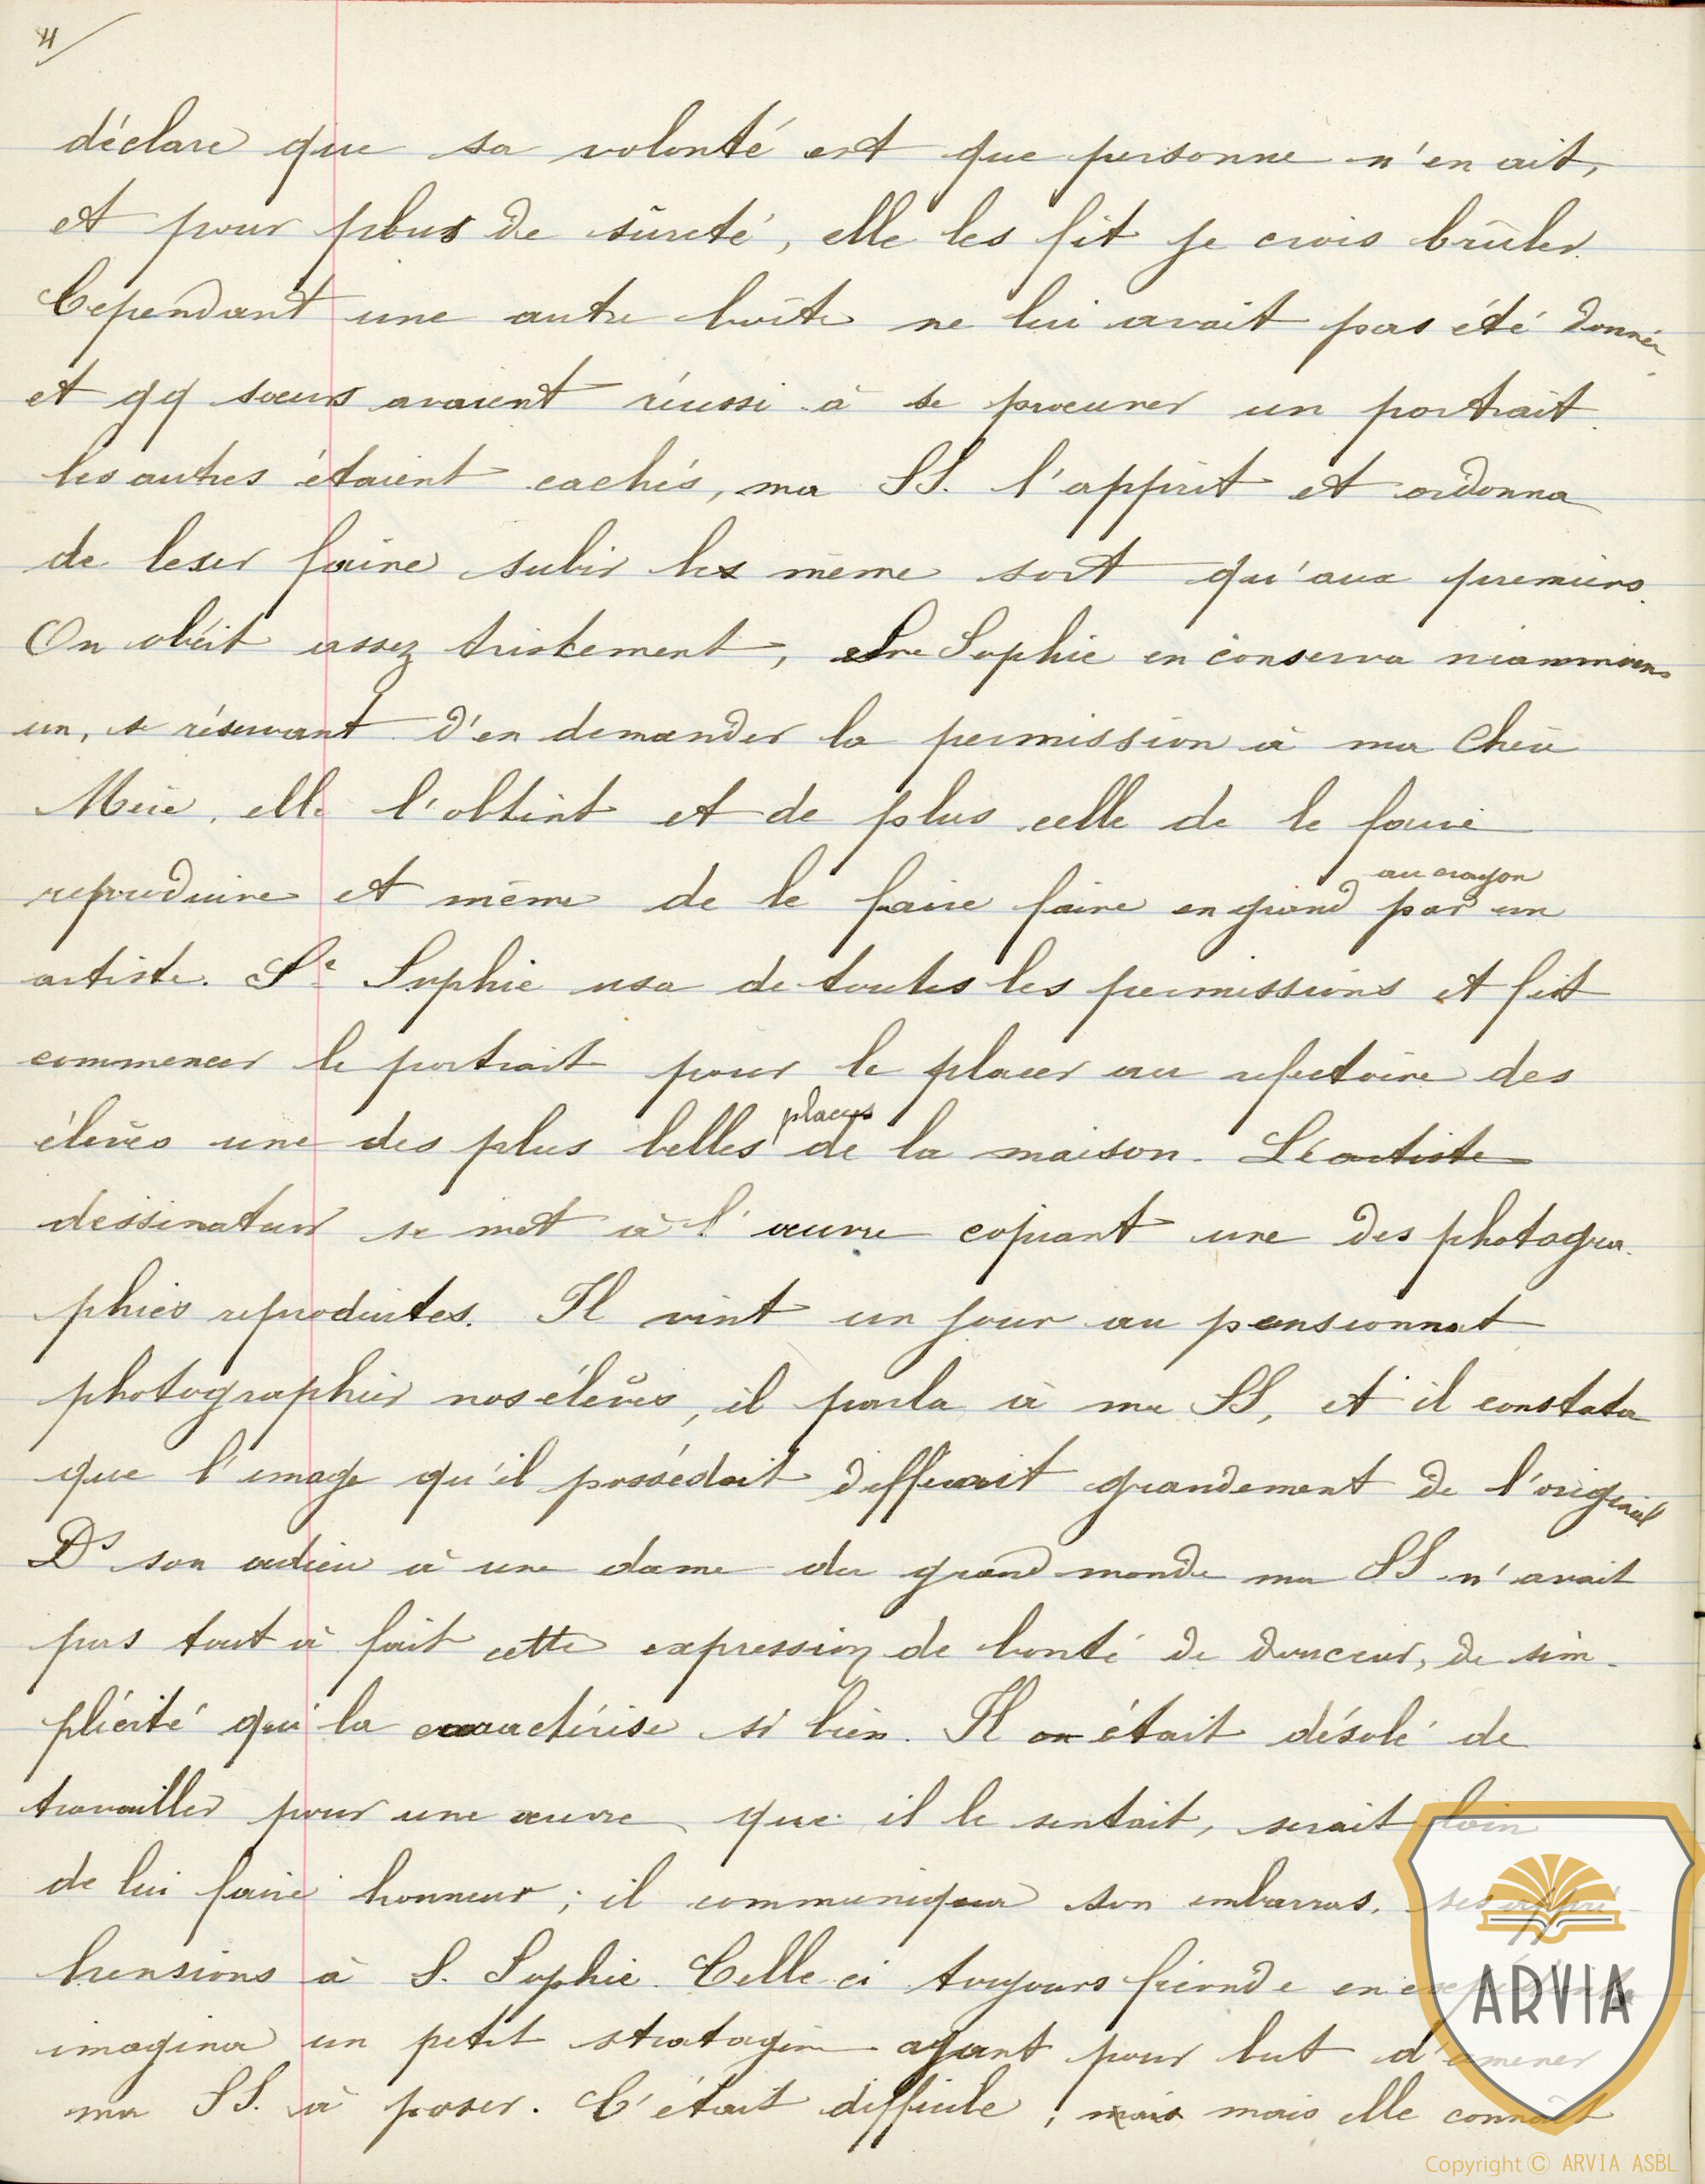 4/
déclare que sa volonté est que personne n'en ait,
et pour plus de sûreté, elle les fit je crois brûler.
Cependant une autre boîte ne lui avait pas été donnée
et qq sœurs avaient réussi à se procurer un portrait.
les autres étaient cachés, ma SS. l'apprit et ordonna
de leser faire subir les même sort qu'aux premiers.
On obéit assez tristement, Sr Sophie en conserva néammoins
un, se réservant d'en demander la permission à ma Chère
Mère, elle l'obtint et de plus celle de le faire
reproduire et même de le faire faire en grand au crayon par un
artiste. Sr Sophie usa de toutes les permissions et fit
commencer le portrait pour le placer au refectoire des
élèves une des plus belles places de la maison. Le artiste
dessinateur se met à l'œuvre copiant une des photogra-
phies reproduites. Il vint un jour au pensionnat
photographier nos élèves, il parla à ma SS, et il constata
que l'image qu'il possédait differait grandement de l'original
Ds son adieu à une dame du grand monde ma SS n'avait
pas tout à fait cette expression de bonté de douceur, de sim-
plicité qui la caractérise si bien. Il en était désolé de
travailler pour une œuvre que il le sentait, serait loin
de lui faire honneur ; il communiqua son embarras, ses appré-
hensions à S. Sophie. Celle ci toujours féconde en
imagina un petit stratagem ayant pour but d'amener
ma SS. à poser. C'était difficile ; mais mais elle connaît
ARVIA
Copyright © ARVIA ASBL